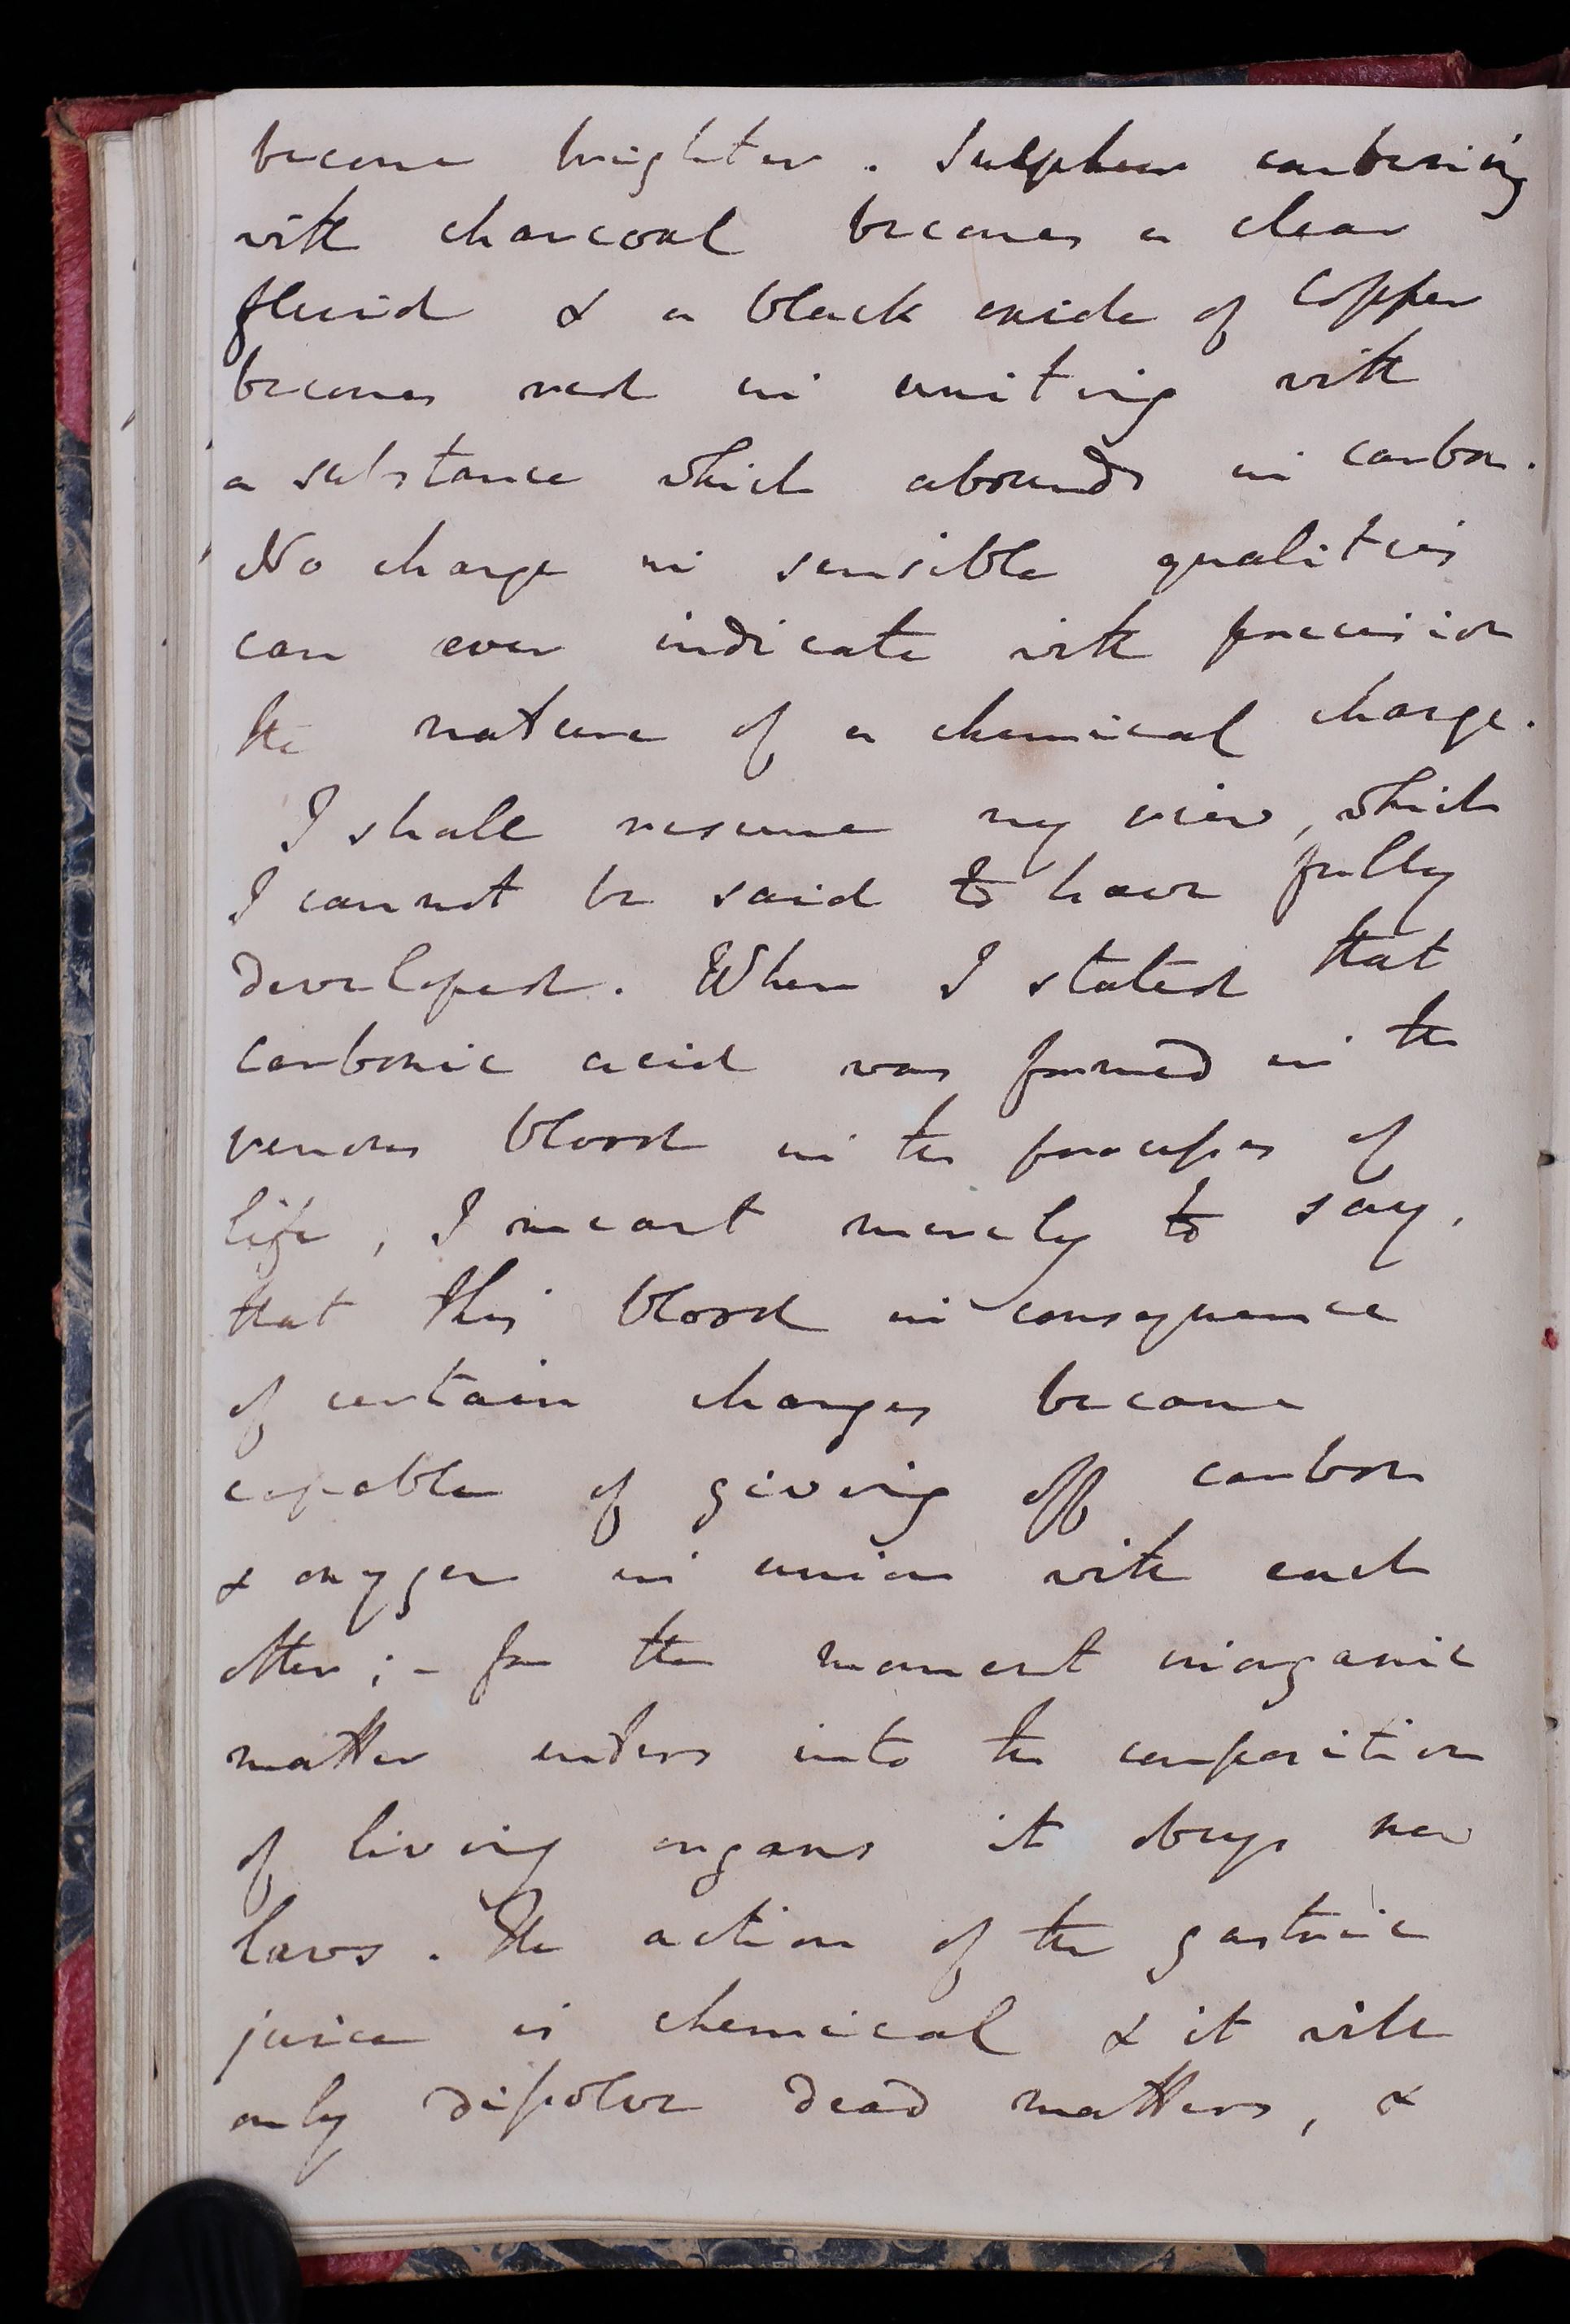 become brighter. Sulphur combining
with charcoal becomes a clear
fluid & a black oxide of Copper
becomes red in uniting with
a substance which abounds in carbon.
No change in sensible qualities
can ever indicate with precision
the nature of a chemical change.
I shall resume my view, which
I cannot be said to have fully
developed. When I stated that
carbonic acid was formed in the
venous blood in the processes of
life, I meant merely to say,
that this blood in consequence
of certain changes became
capable of giving off carbon
& oxygen in union with each
other; – for the moment inorganic
matter enters into the composition
of living organs it obeys new
laws. The action of the gastric
juice is chemical & it will
only dissolve dead matters, &